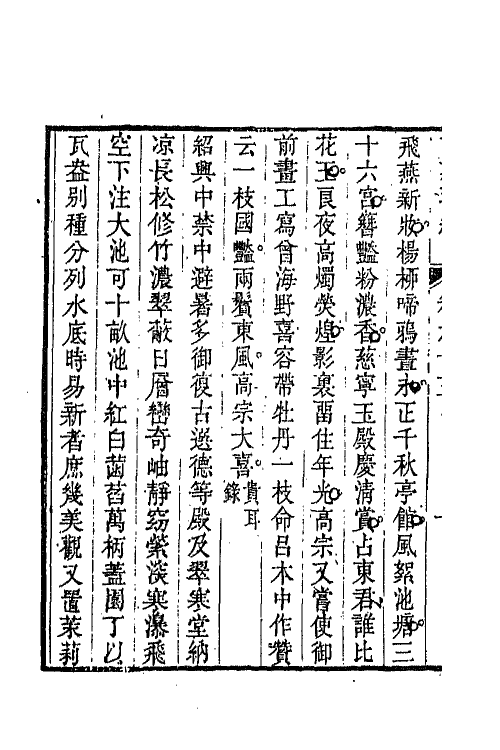 飛燕新妝楊柳啼鴉晝永正千秋亭館風絮池塘三
十六宮簪豔粉濃香慈寧玉殿慶清賞占東君誰比
花王良夜高燭熒煌影裏留住年光高宗又嘗使御
前畫工寫曾海野喜容帶牡丹一枝命吕本中作贊
云一枝國豔兩鬢東風高宗大喜貴耳錄
紹興中禁中避暑多御復古選德等殿及翠寒堂納
凉長松修竹濃翠蔽日層巒奇岫靜窈縈深寒瀑飛
空下注大池可十畝池中紅白菡萏萬柄蓋園丁以
瓦盎別種分列水底時易新者庶幾美觀又置茉莉